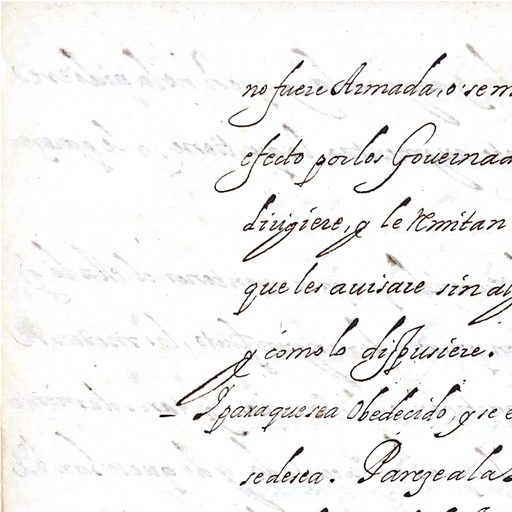 no fuere Armada, o sem
efecto por los Governad
dirigiere, y le Remitan
que les avisare sin alg
y como lo dispusiere.
– Y para que sea Obedecido, y se e
se desea. Pareze a la